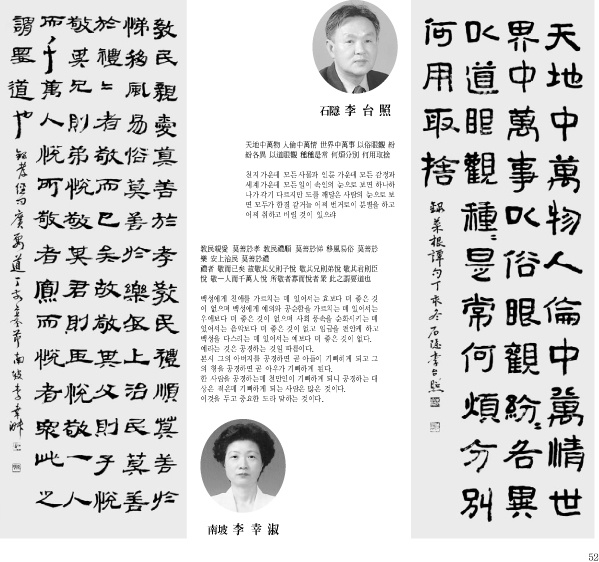 天地中萬物人倫中萬情世
界中萬事以俗眼觀紛〻各異
以道眼觀種〻是常何煩分別
何用取捨
錄菜根譚句丁亥冬石隱李台照
石隱 李台照
天地中萬物 人倫中萬情 世界中萬事 以俗眼觀 紛
紛各異 以道眼觀 種種是常 何煩分別 何用取捨
천지 가운데 모든 사물과 인륜 가운데 모든 감정과
세계 가운데 모든 일이 속인의 눈으로 보면 하나하
나가 각기 다르지만 도를 깨달은 사람의 눈으로 보
면 모두가 한결 같거늘 어찌 번거로이 분별을 하고
어찌 취하고 버릴 것이 있으랴
敎民親愛 莫善於孝 敎民禮順 莫善於悌 移風易俗 莫善於
樂 安上治民 莫善於禮
禮者 敬而已矣 故敬其父則子悅 敬其兄則弟悅 敬其君則臣
悅 敬一人而千萬人悅 所敬者寡而悅者衆 此之謂要道也
백성에게 친애를 가르치는 데 있어서는 효보다 더 좋은 것
이 없으며 백성에게 예의와 공순함을 가르치는 데 있어서는
우애보다 더 좋은 것이 없으며 사회 풍속을 순화시키는 데
있어서는 음악보다 더 좋은 것이 없고 임금을 편안케 하고
백성을 다스리는 데 있어서는 예보다 더 좋은 것이 없다.
예라는 것은 공경하는 것일 따름이다.
본시 그의 아버지를 공경하면 곧 아들이 기뻐하게 되고 그
의 형을 공경하면 곧 아우가 기뻐하게 된다.
한 사람을 공경하는데 천만인이 기뻐하게 되니 공경하는 대
상은 적은데 기뻐하게 되는 사람은 많은 것이다.
이것을 두고 중요한 도라 말하는 것이다.
南坡 李幸淑
敎民親愛莫善於孝敎民禮順莫善於
悌移風易俗莫善於樂安上治民莫善
於禮〻者敬而已矣故敬其父則子悅
敬其兄則弟悅敬其君則臣悅敬一人
而千萬人悅所敬者寡而悅者衆此之
謂要道也
52